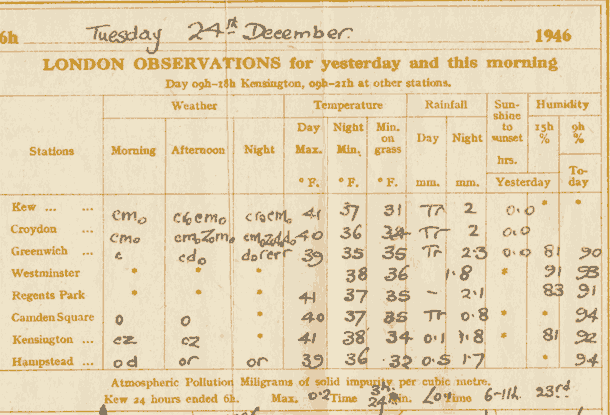 6h Tuesday 24th December. 1946
LONDON OBSERVATIONS for yesterday and this morning
Day 09h–18h Kensington, 09h–21h at other stations.
Stations Weather Temperature Rainfall Sun-shine to sunset hrs. Humidity
Morning Afternoon Night Day Max. Night Min. Min. on grass Day Night 15h % 9h %
° F. ° F. ° F. mm. mm. Yesterday To-day
Kew ... ... cmo 41 37 31 Tr 2 0.0 * *
Croydon ... cmo 40 36 Tr 2 0.0
Greenwich ... c cdo 39 35 35 Tr 2.3 0.0 81 90
Westminster * * * 38 36 1.8 * 91 93
Regents Park * * * 41 37 35 – 2.1 83 91
Camden Square o o * 40 37 35 Tr 0.8 * * 94
Kensington ... cz cz * 41 38 34 0.1 1.8 * 81 92
Hampstead ... od or or 39 36 32 0.5 1.7 * 94
Atmospheric Pollution Miligrams of solid impurity per cubic metre.
Kew 24 hours ended 6h. Max. 0.2 Time Min. Time 6-11h. 23rd